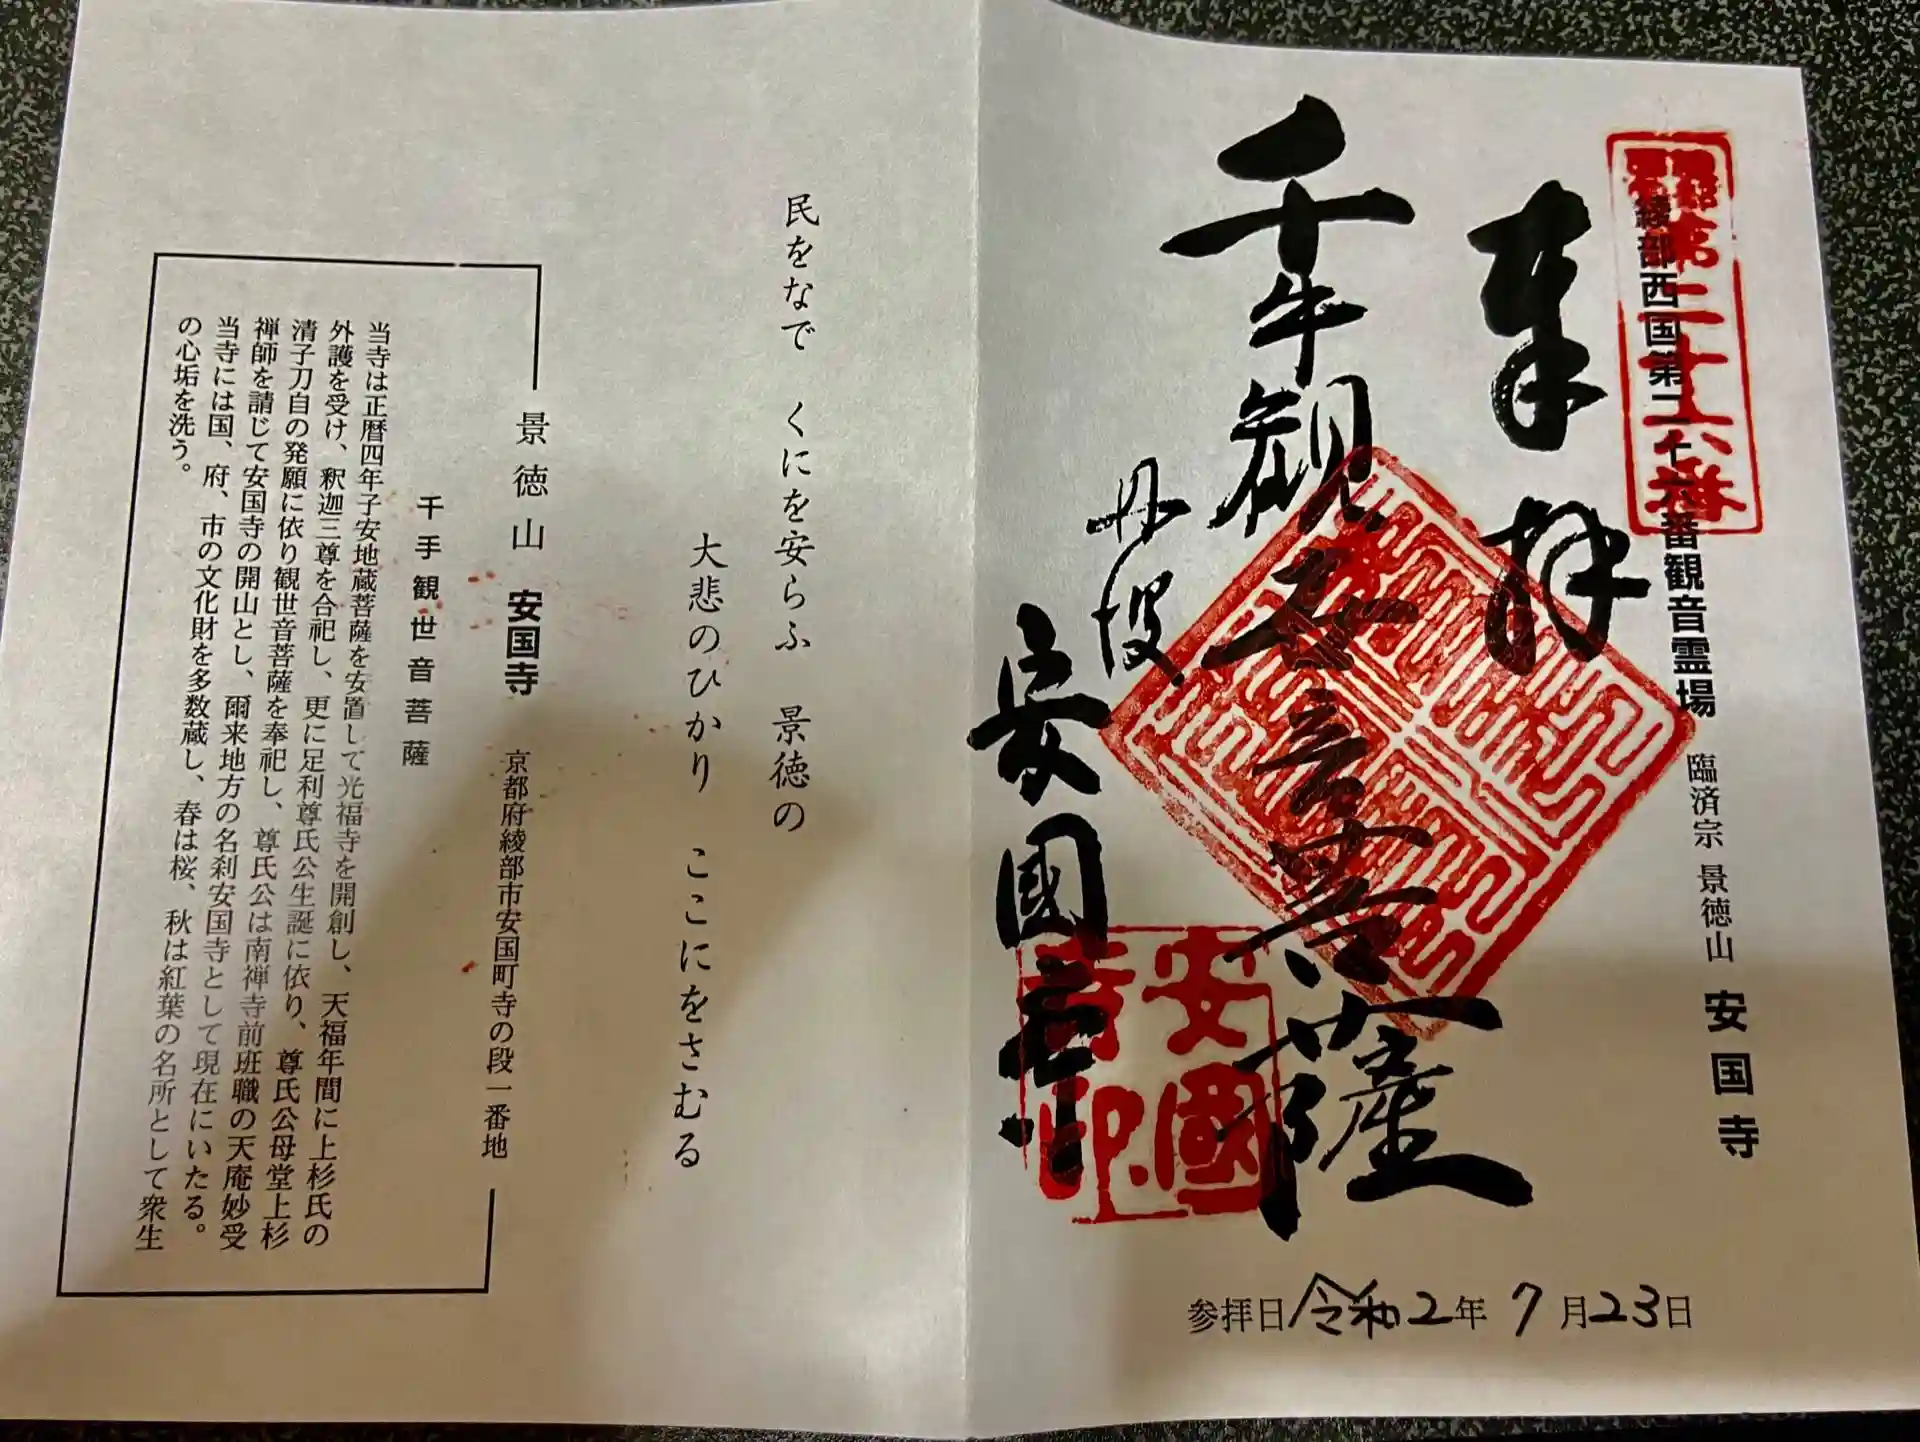 綾部西国第二十六番観音霊場 臨済宗 景徳山 安国寺
第二十六番
奉拝
千手観世音菩薩
丹波
安國寺
安國
寺印
参拝日 令和2年 7月23日
民をなで くにを安らふ 景徳の
大悲のひかり ここにをさむる
景徳山 安国寺 京都府綾部市安国町寺の段一番地
千手観世音菩薩
当寺は正暦四年子安地蔵菩薩を安置して光福寺を開創し、天福年間に上杉氏の
外護を受け、釈迦三尊を合祀し、更に足利尊氏公生誕に依り、尊氏公母堂上杉
清子刀自の発願に依り観世音菩薩を奉祀し、尊氏公は南禅寺前班職の天庵妙受
禅師を請じて安国寺の開山とし、爾来地方の名刹安国寺として現在にいたる。
当寺には国、府、市の文化財を多数蔵し、春は桜、秋は紅葉の名所として衆生
の心垢を洗う。